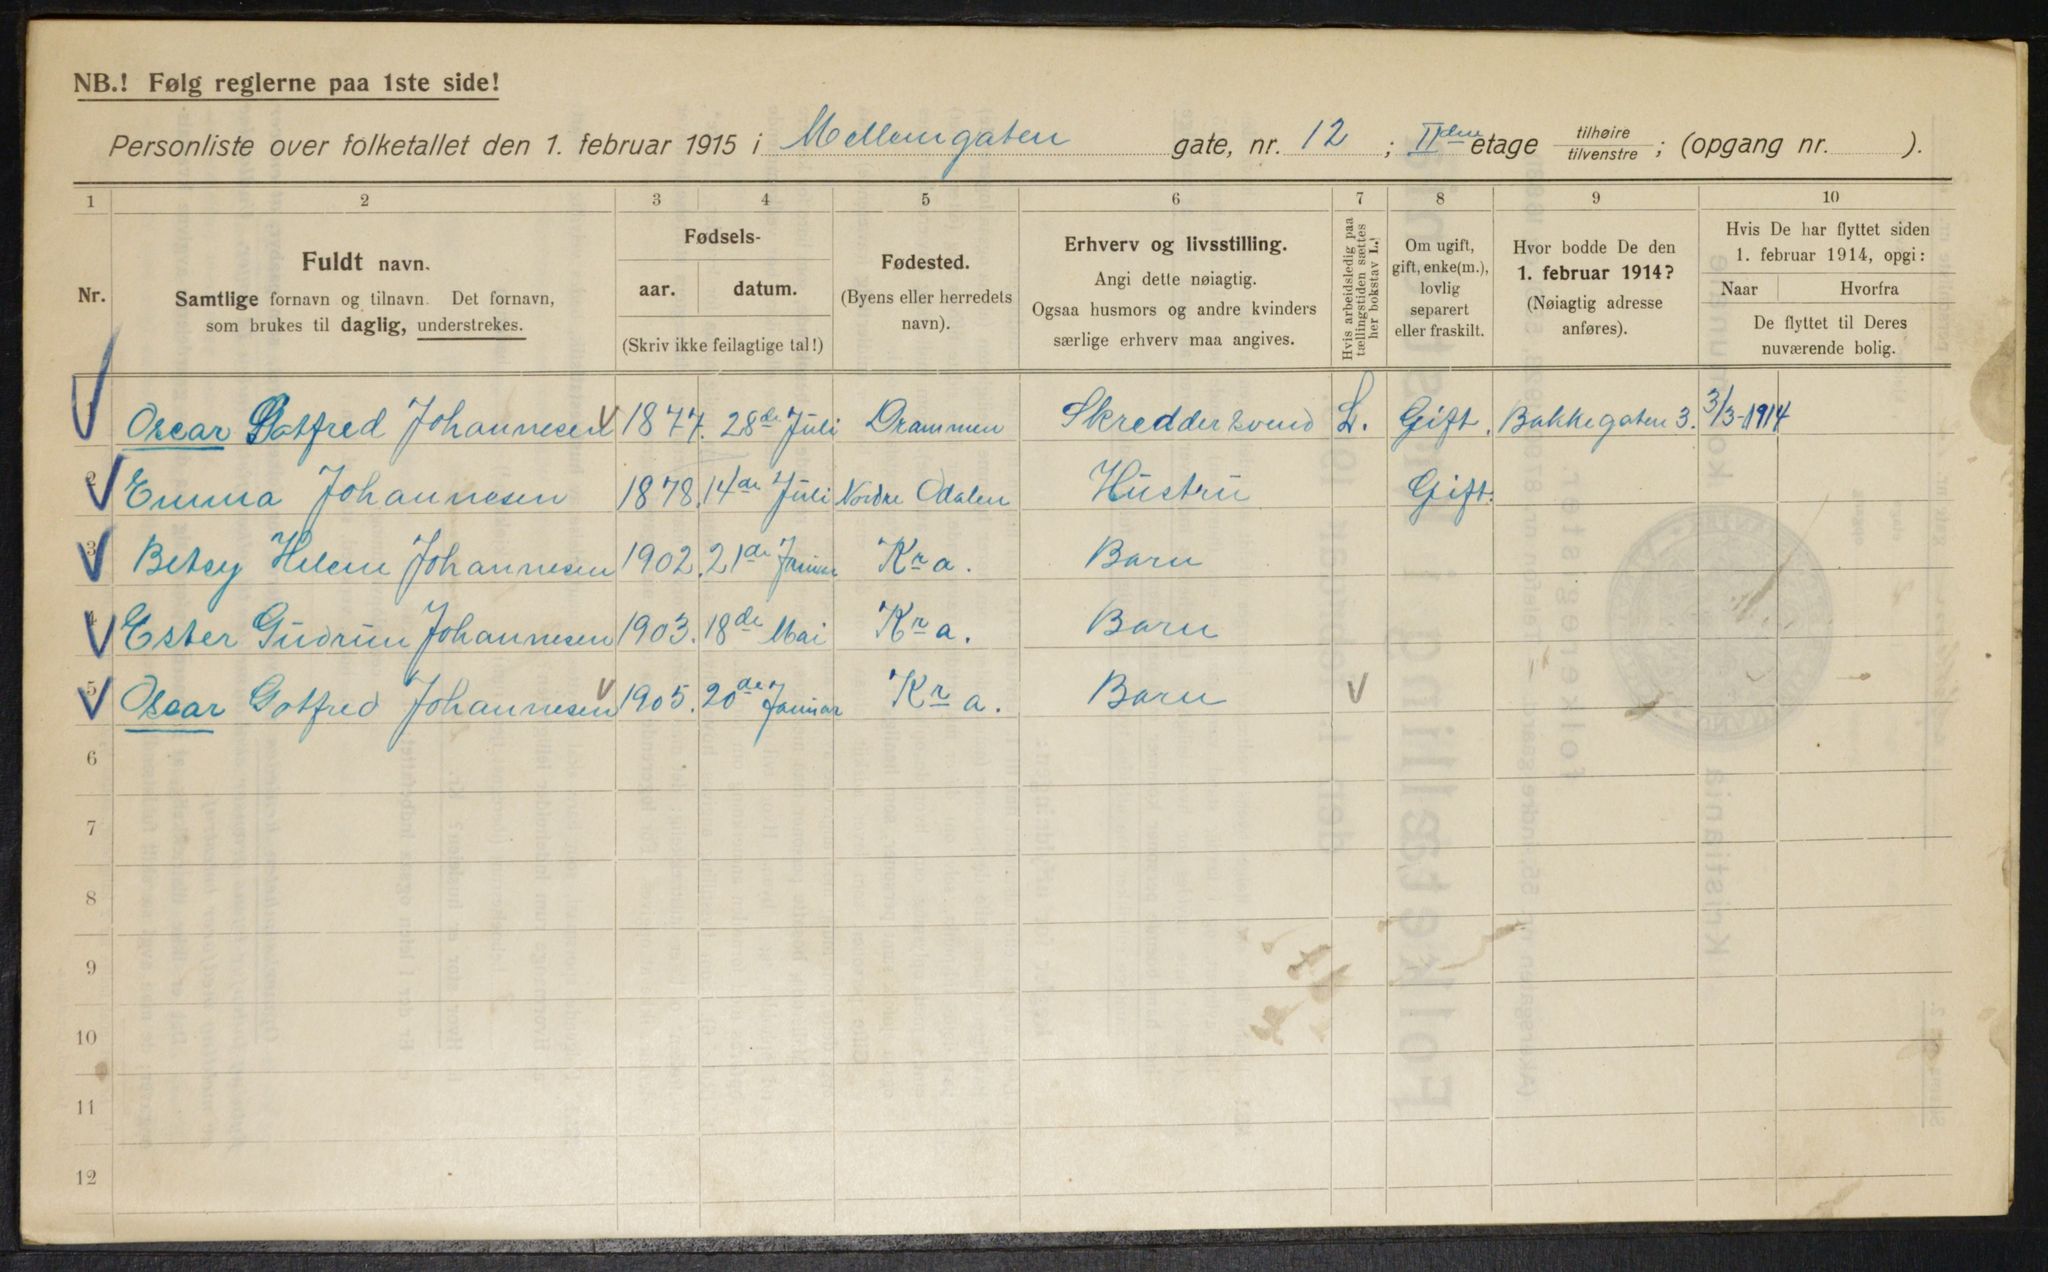 NB.! Følg reglerne paa 1ste side!
Personliste over folketallet den 1. februar 1915 i Mellemgaten gate, nr. 12 ; II den etage tilhøire/tilvenstre ; (opgang nr. ).
1 2 3 4 5 6 7 8 9 10
Nr.
Fuldt navn.
Samtlige fornavn og tilnavn. Det fornavn,
som brukes til daglig, understrekes.
Fødsels-
aar. datum.
(Skriv ikke feilagtige tal!)
Fødested.
(Byens eller herredets
navn).
Erhverv og livsstilling.
Angi dette nøiagtig.
Ogsaa husmors og andre kvinders
særlige erhverv maa angives.
Hvis arbeidsledig paa
tællingstiden sættes
her bokstav L.!
Om ugift,
gift, enke(m.),
lovlig
separert
eller fraskilt.
Hvor bodde De den
1. februar 1914?
(Nøiagtig adresse
anføres).
Hvis De har flyttet siden
1. februar 1914, opgi:
Naar Hvorfra
De flyttet til Deres
nuværende bolig.
Oscar Gotfred Johannesen 1877. 28de Juli Drammen Skreddersvend L. Gift. Bakkegaten 3. 3/3-1914
2 Emma Johannesen 1878. 14de Juli Nordre Odalen Hustru Gift.
3 Betsy Helene Johannesen 1902. 21de Januar Kra. Barn
4 Ester Gudrun Johannesen 1903. 18de Mai Kra. Barn
5 Oscar Gotfred Johannesen 1905. 20de Januar Kra. Barn
6
7
8
9
10
11
12